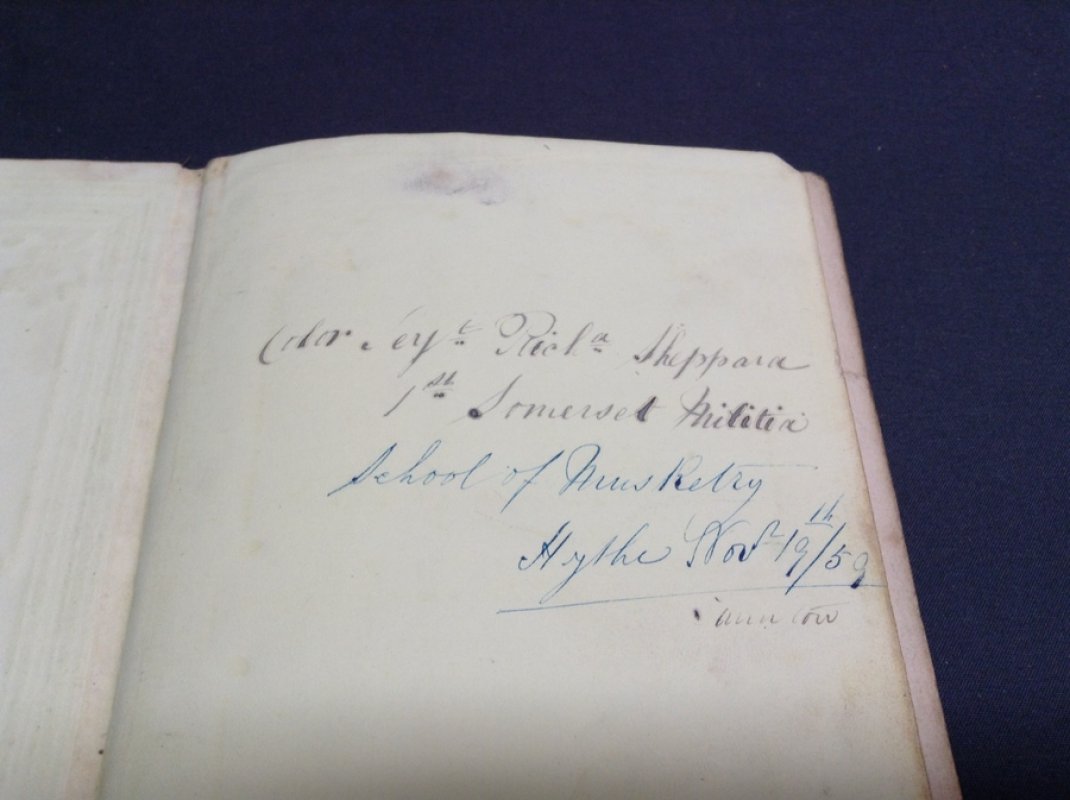 Color Serg.t Rich.d Sheppard
1st Somerset Militia
School of Musketry
Hythe Novr 19th/59
Taunton